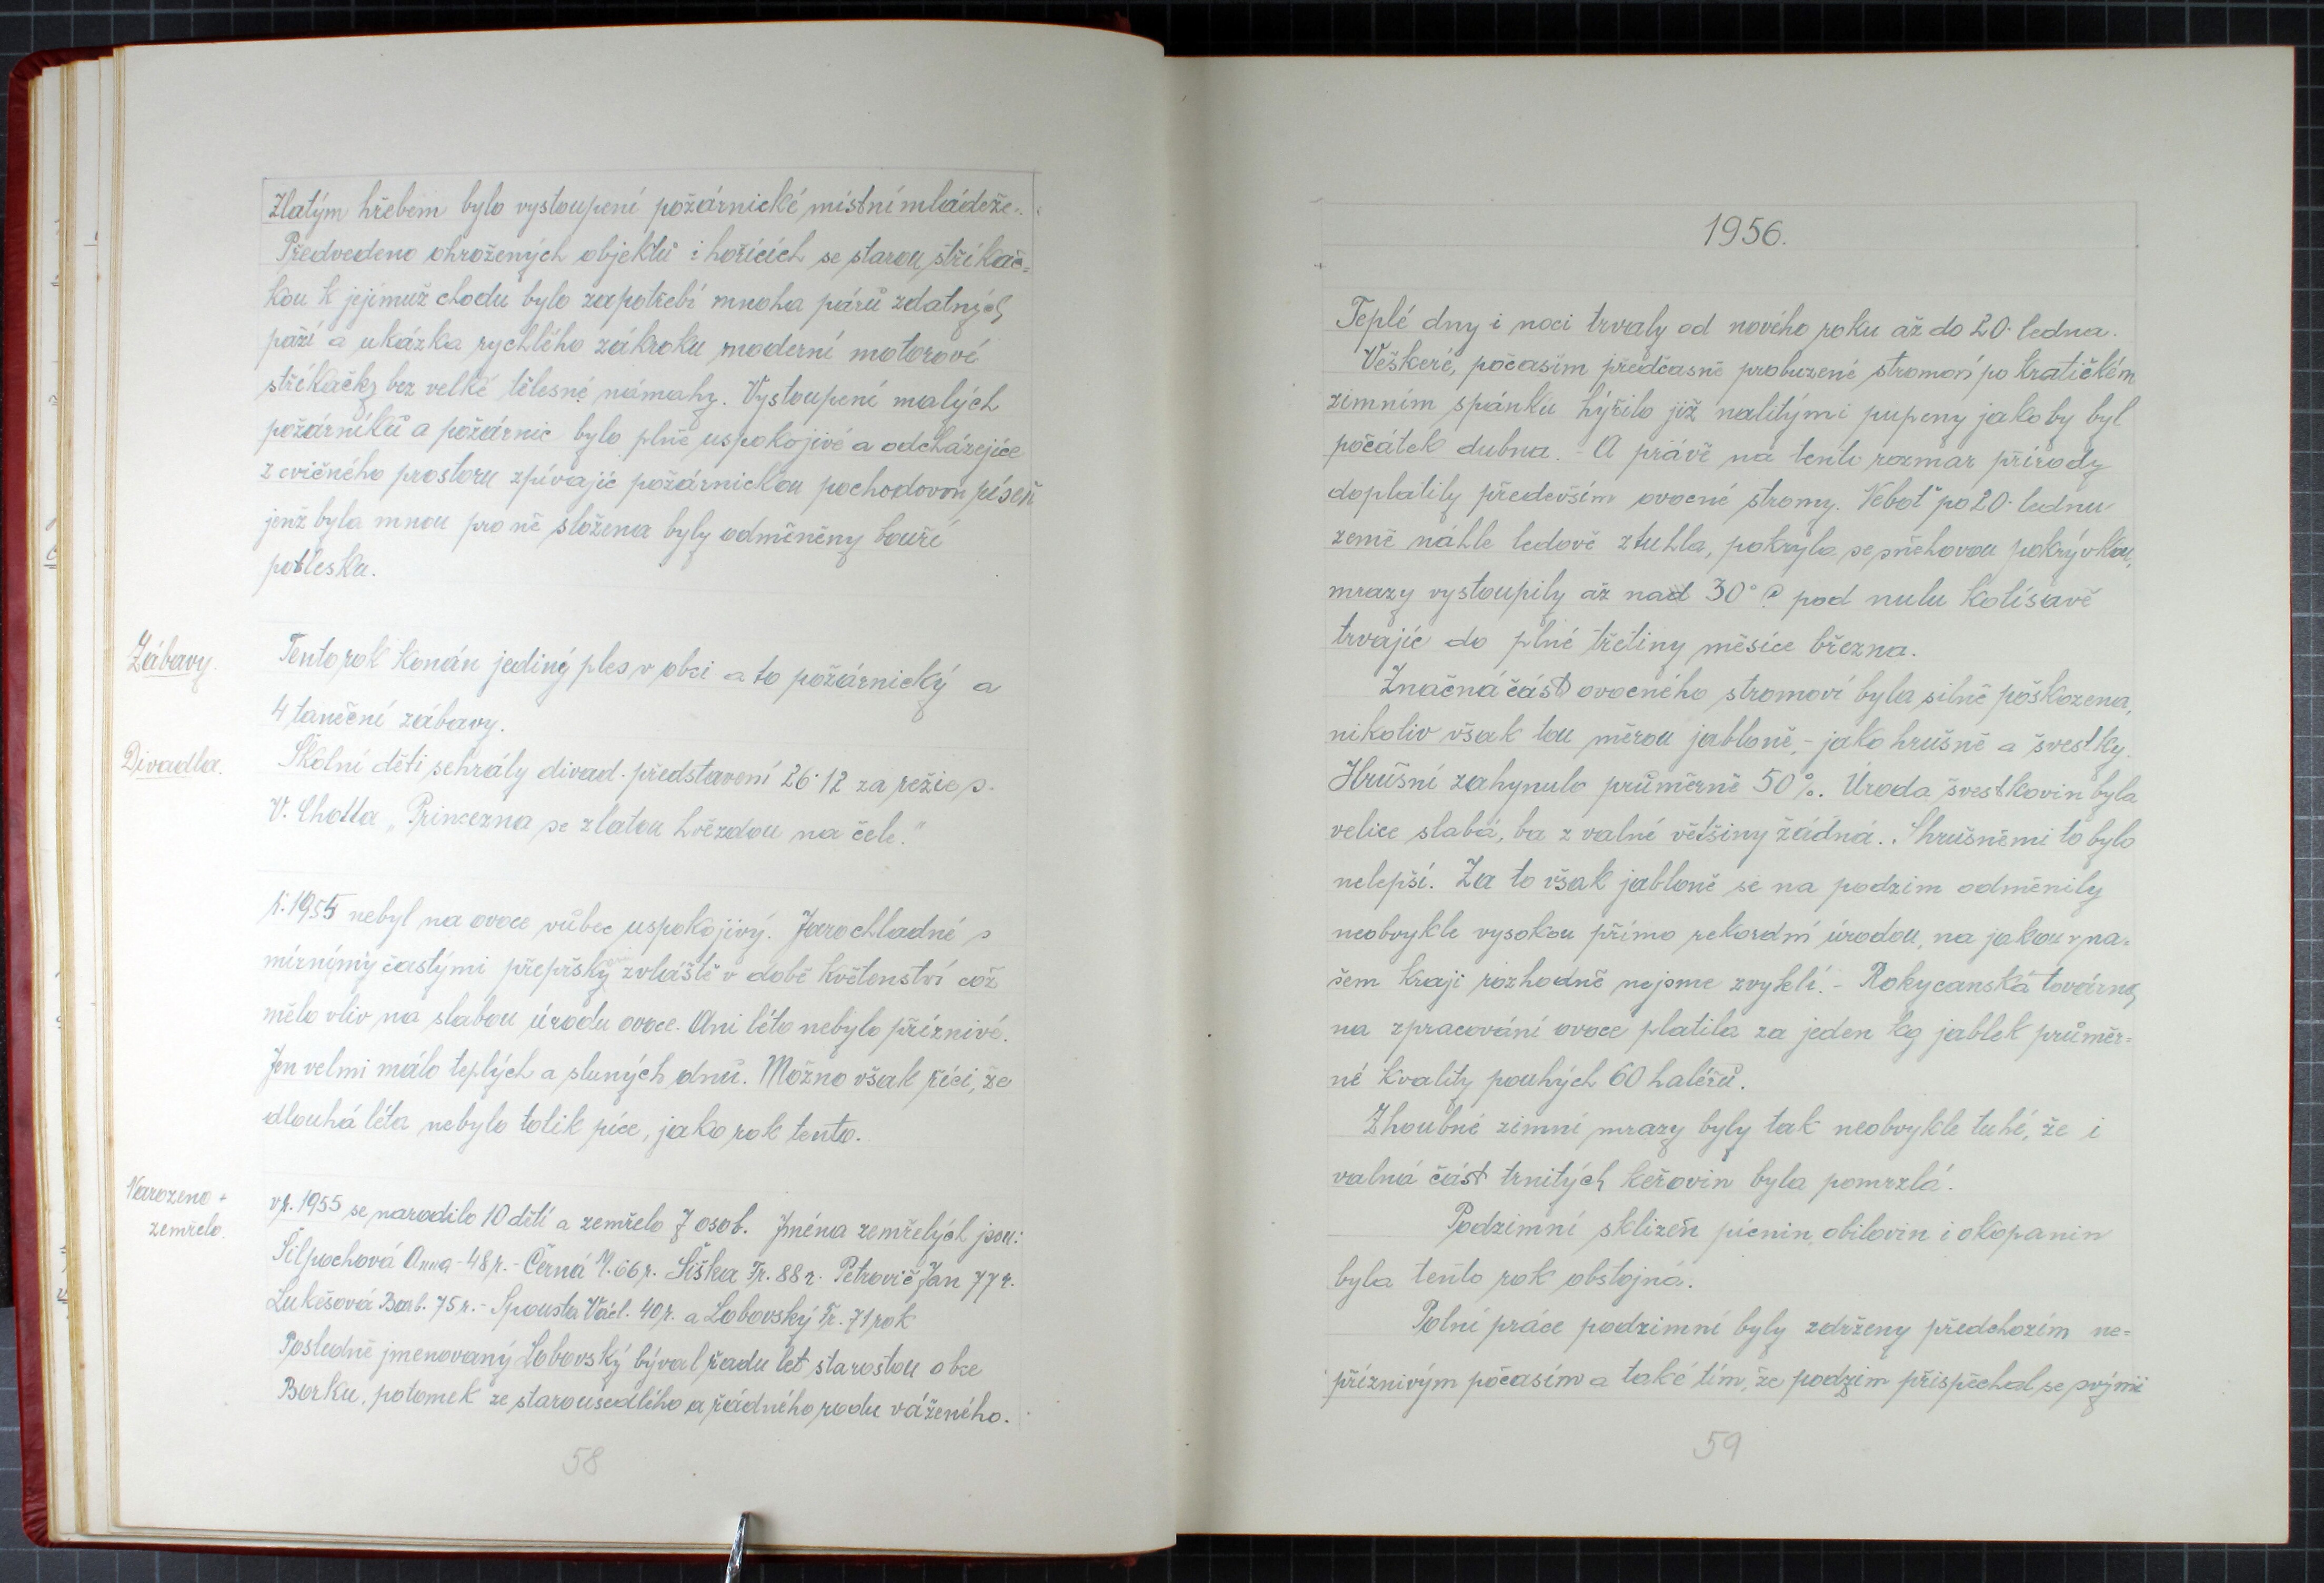 Zlatým hřebem bylo vystoupení požárnické místní mládeže.
Předvedeno ohrožených objektů i hořících se starou stříkač=
kou k jejímuž chodu bylo zapotřebí mnoha párů zdatných
paží a ukázka rychlého zákroku moderní motorové
stříkačky bez velké tělesné námahy. Vystoupení malých
požárníků a požárnic bylo plně uspokojivé a odcházejíce
z cvičného prostoru zpívajíc požárnickou pochodovou píseň
jenž byla mnou pro ně složena byly odměněny bouří
potlesku.
Zábavy.
Tento rok konán jediný ples v obci a to požárnický a
4 taneční zábavy.
Divadla.
Školní děti sehrály divad. představení 26.12 za režie s.
V. Chotta „Princezna se zlatou hvězdou na čele."
R. 1955 nebyl na ovoce vůbec uspokojivý. Jaro chladné s
mírnými častými přepršky zvláště v době květenství což
mělo vliv na slabou úrodu ovoce. Ani léto nebylo příznivé.
Jen velmi málo teplých a sluných dnů. Možno však říci, že
dlouhá léta nebylo tolik píce, jako rok tento.
Narozeno +
zemřelo.
v r. 1955 se narodilo 10 dětí a zemřelo 7 osob. Jména zemřelých jsou:
Šilpochová Anna - 48 r. - Černá M. 66 r. Šiška Fr. 88 r. Petrovič Jan 77 r.
Lukešová Barb. 75 r. - Spousta Václ. 40 r. a Lobovský Fr. 71 rok
Posledně jmenovaný Lobovský býval řadu let starostou obce
Borku, potomek ze starousedlého a řádného rodu váženého.
58
1956.
Teplé dny i noci trvaly od nového roku až do 20. ledna.
Veškeré, počasím předčasně probuzené stromoví po kratičkém
zimním spánku hýřilo již nalitými pupeny jako by byl
počátek dubna. - A právě na tento rozmar přírody
doplatily především ovocné stromy. Neboť po 20. lednu
země náhle ledově ztuhla, pokryla se sněhovou pokrývkou,
mrazy vystoupily až nad 30° C pod nulu kolísavě
trvajíc do plné třetiny měsíce března.
Značná část ovocného stromoví byla silně poškozena,
nikoliv však tou měrou jabloně, - jako hrušně a švestky.
Hrušní zahynulo průměrně 50%. Úroda švestkovin byla
velice slabá, ba z valné většiny žádná. S hrušněmi to bylo
nelepší. Za to však jabloně se na podzim odměnily
neobvykle vysokou přímo rekordní úrodou, na jakou v na=
šem kraji rozhodně nejsme zvyklí. - Rokycanská továrna
na zpracování ovoce platila za jeden kg jablek průměr=
né kvality pouhých 60 haléřů.
Zhoubné zimní mrazy byly tak neobvykle tuhé, že i
valná část trnitých keřovin byla pomrzlá.
Podzimní sklizeň pícnin, obilovin i okopanin
byla tento rok obstojná.
Polní práce podzimní byly zdrženy předchozím ne=
příznivým počasím a také tím, že podzim přispěchal se svými
59